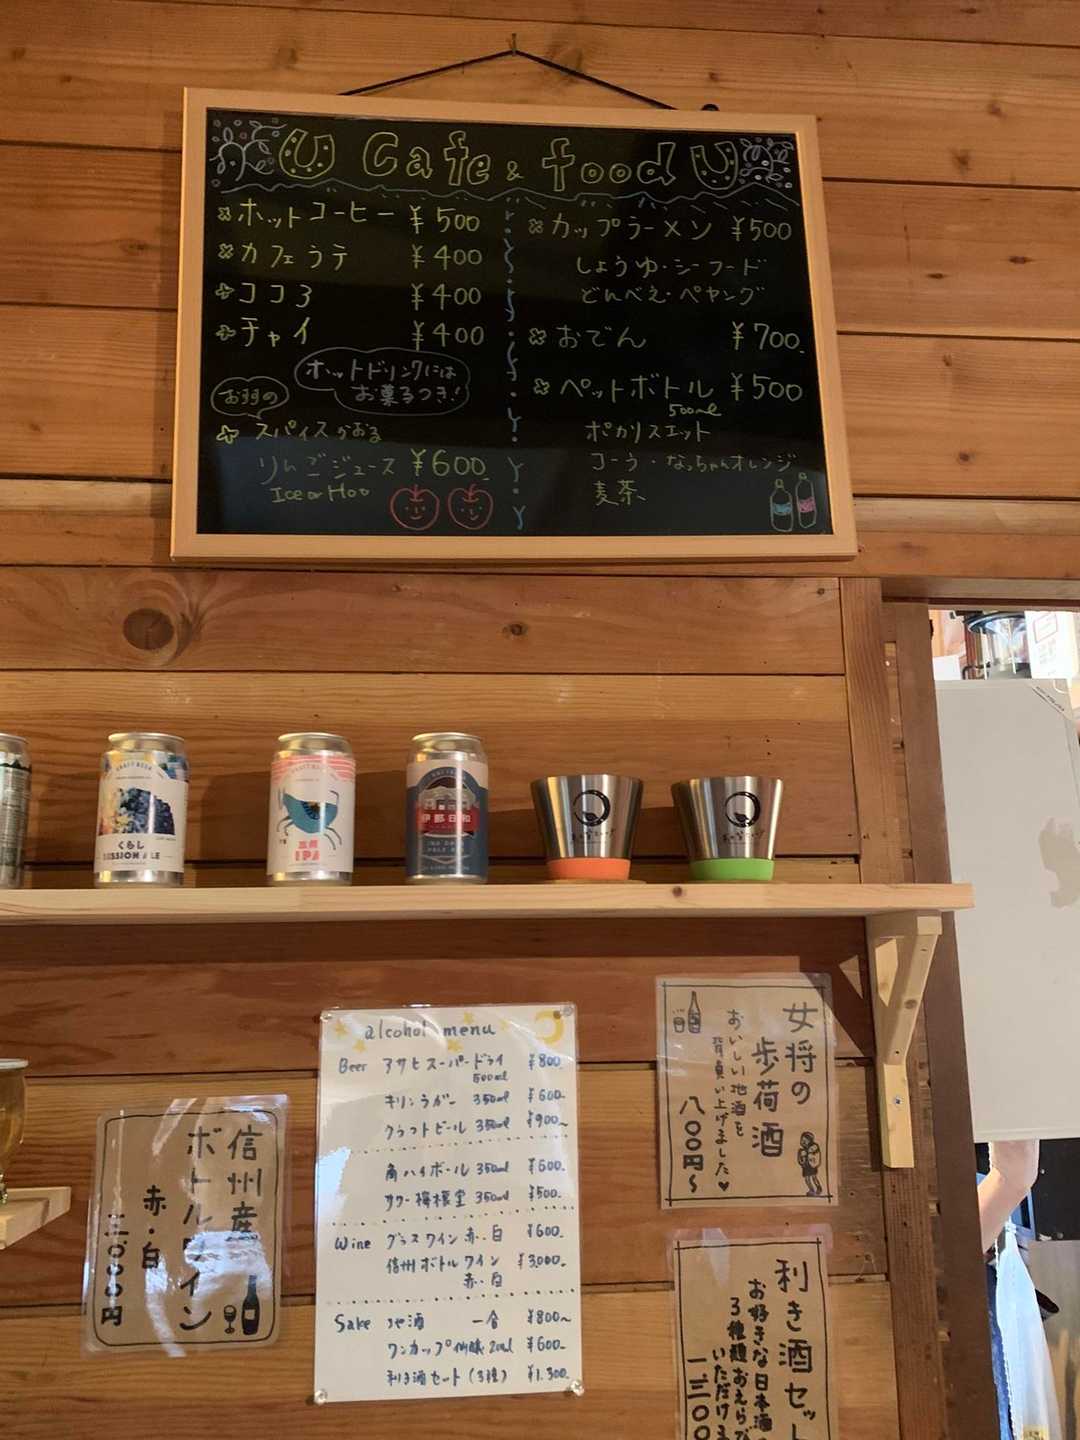 Cafe & food
ホットコーヒー ¥500
カフェラテ ¥400
ココア ¥400
チャイ ¥400
ホットドリンクには
お菓子つき!
お初の
スパイスかおる
りんごジュース ¥600.
Ice or Hot
カップラーメン ¥500
しょうゆ・シーフード
どんべえ・ペヤング
おでん ¥700.
ペットボトル ¥500
500ml
ポカリスエット
コーラ・なっちゃんオレンジ
麦茶
CRAFT BEER
くらし
SESSION ALE
IPA
伊那日和
INA DAYS
PALE ALE
alcohol menu
Beer アサヒスーパードライ ¥800.
500ml
キリンラガー 350ml ¥600-
クラフトビール 350ml ¥900~
角ハイボール 350ml ¥600-
サワー 檸檬堂 350ml ¥500.
Wine グラスワイン 赤・白 ¥600.
信州ボトルワイン ¥3,000-
赤・白
Sake 地酒 一合 ¥800~
ワンカップ 200ml ¥600-
利き酒セット(3種) ¥1,300.
女将の
歩荷酒
おいしい地酒を
背負い上げました♥
八〇〇円~
信州産
ボトルワイン
赤・白
三、〇〇〇円
利き酒セット
お好きな日本酒
3種類おえらび
いただけま
一、三〇〇